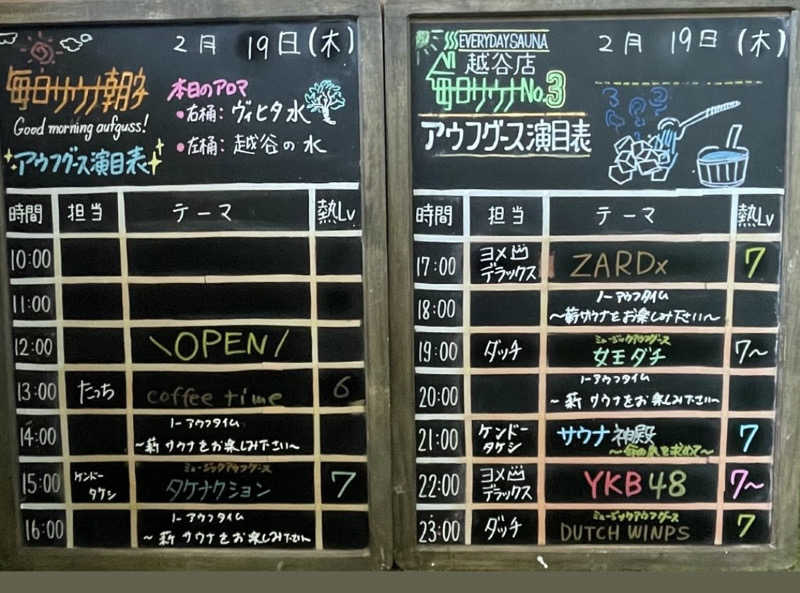 2月 19日(木)
毎日サウナ朝字
Good morning aufguss!
アウフグース演目表
本日のアロマ
・右桶: ヴィヒタ水
・左桶: 越谷の水
時間 担当 テーマ 熱Lv
10:00
11:00
12:00 \OPEN/
13:00 たっち coffee time 6
14:00 ノーアウフタイム
～薪サウナをお楽しみ下さい～
15:00 ケンドータケシ ミュージックアウフグース
タケナクション 7
16:00 ノーアウフタイム
～薪サウナをお楽しみ下さい～
EVERYDAY SAUNA
越谷店
毎日サウナNo.3
2月 19日 (木)
アウフグース演目表
時間 担当 テーマ 熱Lv
17:00 ヨメ
デラックス ZARDx 7
18:00 ノーアウフタイム
～薪サウナをお楽しみ下さい～
19:00 ダッチ ミュージックアウフグース
女王ダチ 7～
20:00 ノーアウフタイム
～薪サウナをお楽しみ下さい～
21:00 ケンドー
タケシ サウナ神殿 7
22:00 ヨメ
デラックス YKB48 7～
23:00 ダッチ ミュージックアウフグース
DUTCH WINPS 7